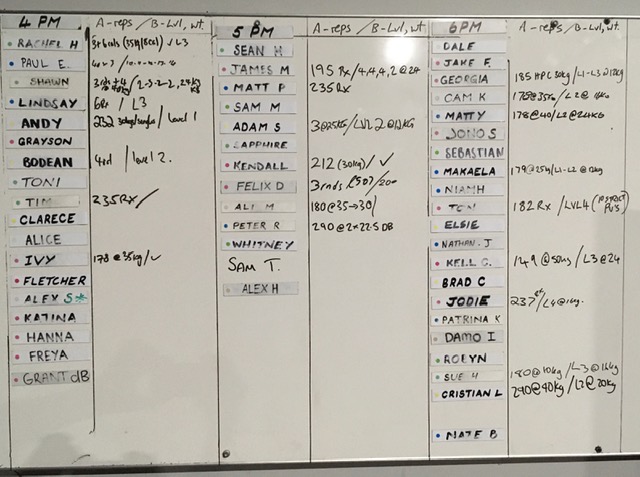 4 PM A-reps / B-Lvl, wt.
RACHEL H L3
PAUL E.
SHAWN 2-3-2-2,
LINDSAY / L3
ANDY 232 / level 1
GRAYSON
BODEAN 4rd / level 2.
TONI
TIM 235 RX /
CLARECE
ALICE
IVY 178 @ 35kg / ✓
FLETCHER
ALEX S*
KATINA
HANNA
FREYA
GRANT dB
5 PM A-reps / B-Lvl, wt.
SEAN H
JAMES M 195 Rx / 4,4,4,2 @ 24
MATT P 235 RX
SAM M
ADAM S 3 @ 25KG / LVL 2 @ 12KG
SAPPHIRE
KENDALL 212 (30kg) / ✓
FELIX D 3rnds
ALI M 180 @ 35→30 /
PETER R 290 @ 2×22.5 DB
WHITNEY
SAM T.
ALEX H
6PM A-reps / B-Lvl, wt.
DALE
JAKE F.
GEORGIA 185 30kg / L1-L3 @ 12kg
CAM K @ 35kg / L2 @ 16kg
MATTY 178 @ 40 / L2 @ 24KG
JONO S
SEBASTIAN
MAKAELA 179 @ 25 / L1-L2 @
NIAMH
182 RX / LVL4
ELSIE
NATHAN. J
KELL G. 149 @ / L3 @ 24
BRAD C
JODIE 237 / L4 @
PATRINA K
DAMO I
ROBYN
SUE H 180 @ 10kg / L3 @ 16kg
CRISTIAN L 290 @ 40kg / L2 @ 20kg
NATE B